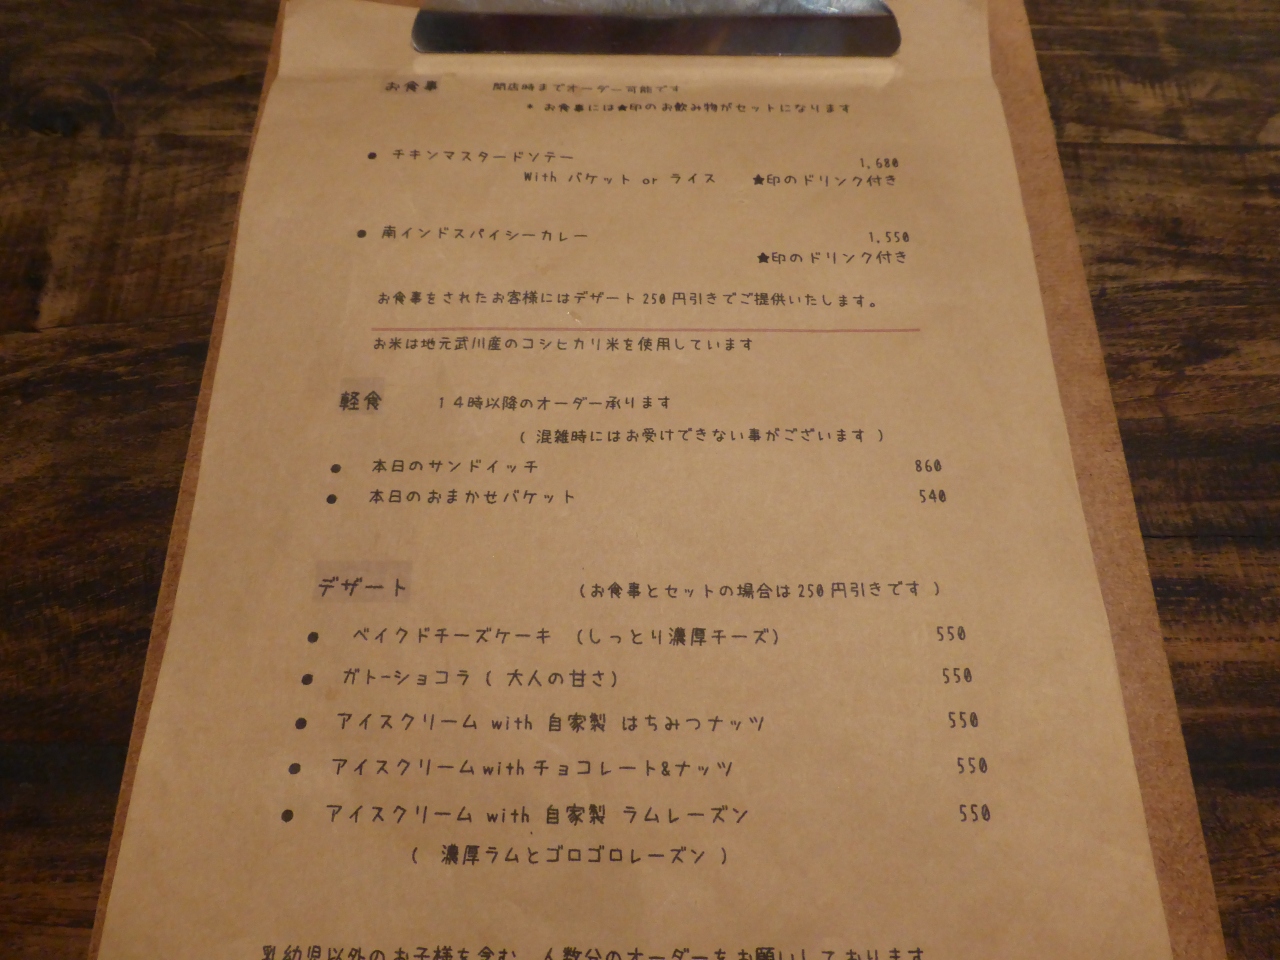 お食事 閉店時までオーダー可能です
* お食事には★印のお飲み物がセットになります
● チキンマスタードソテー 1,680
With バケット or ライス ★印のドリンク付き
● 南インドスパイシーカレー 1,550
★印のドリンク付き
お食事をされたお客様にはデザート250円引きでご提供いたします。
お米は地元武川産のコシヒカリ米を使用しています
軽食 14時以降のオーダー承ります
( 混雑時にはお受けできない事がございます )
● 本日のサンドイッチ 860
● 本日のおまかせバケット 540
デザート (お食事とセットの場合は250円引きです )
● ベイクドチーズケーキ (しっとり濃厚チーズ) 550
● ガトーショコラ ( 大人の甘さ) 550
● アイスクリーム with 自家製 はちみつナッツ 550
● アイスクリームwithチョコレート&ナッツ 550
● アイスクリーム with 自家製 ラムレーズン 550
( 濃厚ラムとゴロゴロレーズン )
乳幼児以外のお子様を含む、人数分のオーダーをお願いしております